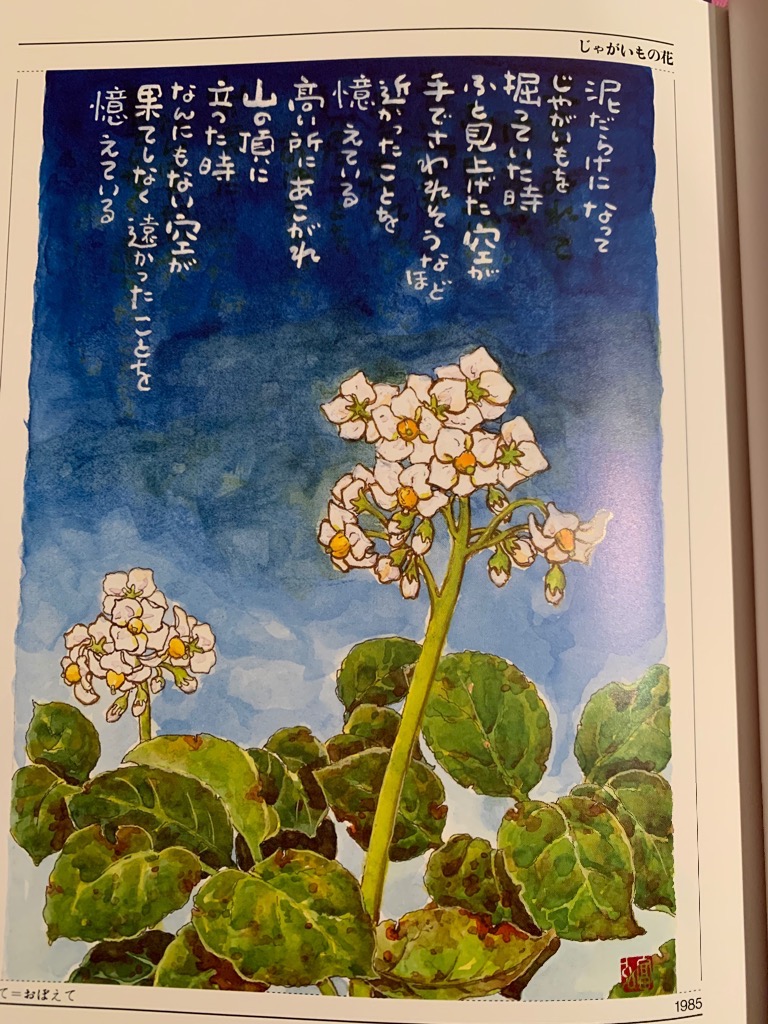 じゃがいもの花
泥だらけになって
じゃがいもを
掘っていた時
ふと見上げた空が
手でさわれそうなほど
近かったことを
憶えている
高い所にあこがれ
山の頂に
立った時
なんにもない空が
果てしなく遠かったことを
憶えている
て＝おぼえて
1985